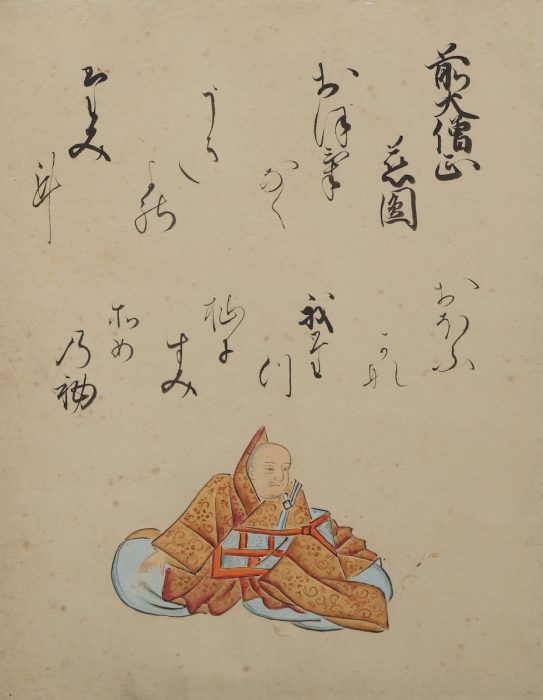 前大僧正
慈圓
おほけ
なく
うき
よの
たみ
に
おほふ
かな
我た
つ
杣に
すみ
そめ
乃袖